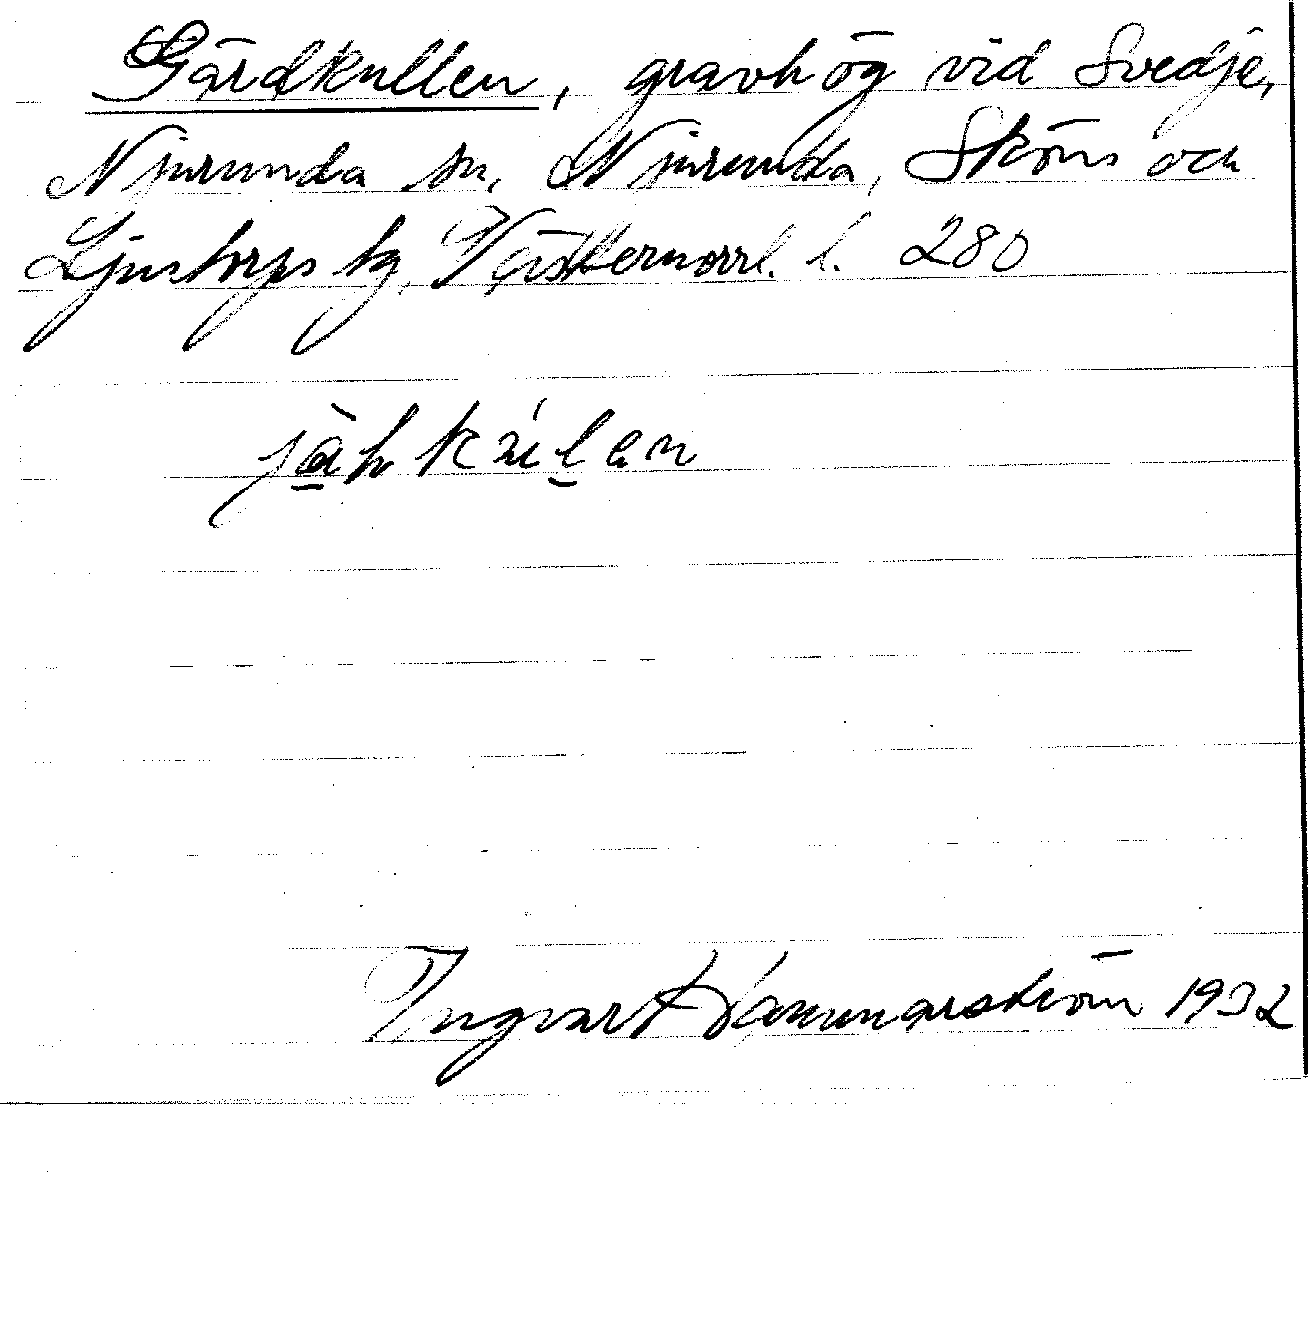 Gärdkullen, gravhög vid Svedje,
Njurunda sn, Njurunda, Sköns och
Ljustorps tg, Västernorrl. l. 280
Ingvar Hammarström 1932